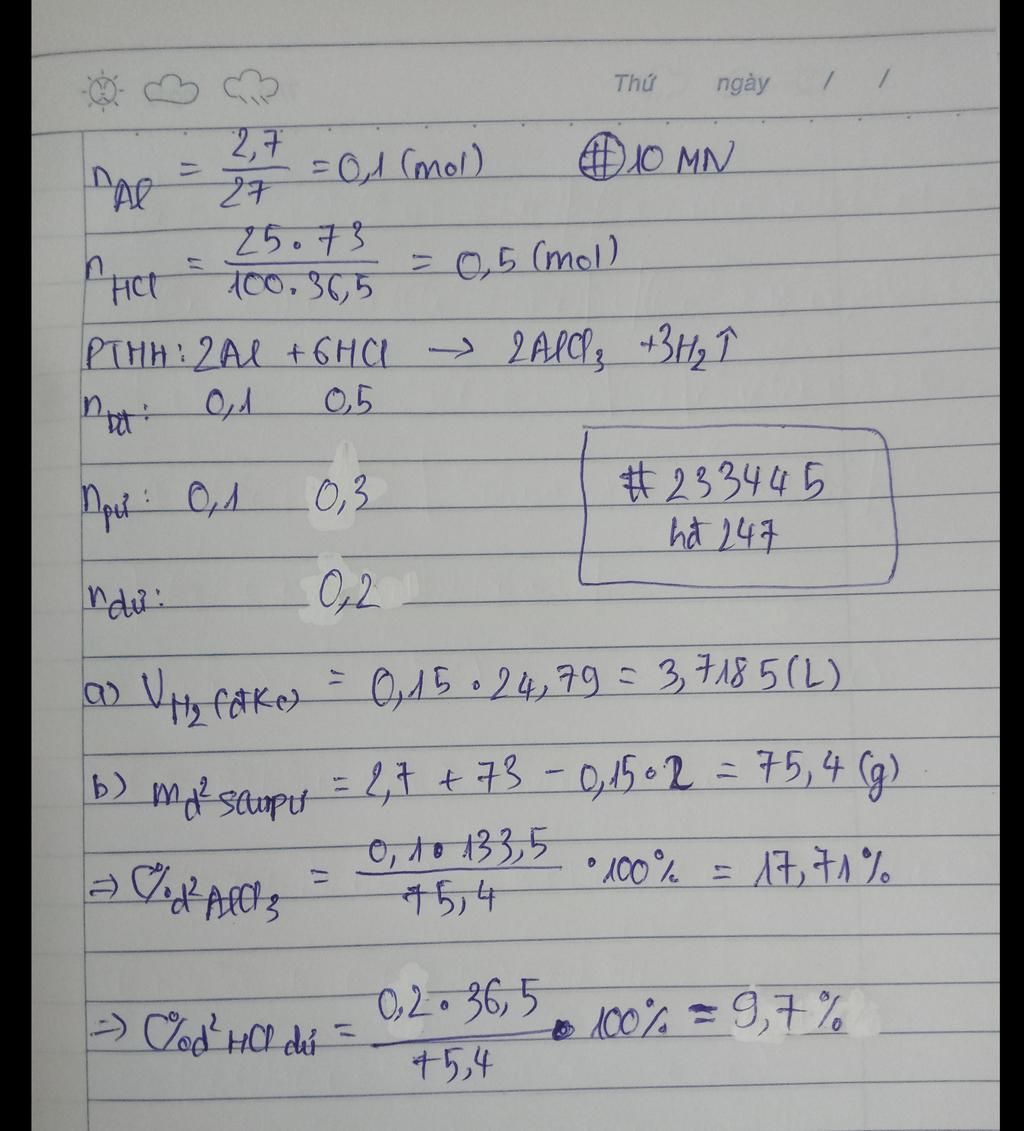 Thứ ngày / /
n_Al = 2,7/27 = 0,1 (mol) # 10 MN
n_HCl = 25.73/100.36,5 = 0,5 (mol)
PTHH: 2Al + 6HCl → 2AlCl₃ + 3H₂↑
n_bđ: 0,1 0,5
n_pứ: 0,1 0,3
# 233445
hđ 247
n_dư: 0,2
a) V_H₂(đkc) = 0,15 . 24,79 = 3,7185 (L)
b) m_d² sau pứ = 2,7 + 73 - 0,15.2 = 75,4 (g)
⇒ C%_d² AlCl₃ = 0,1.133,5/75,4 . 100% = 17,71%
⇒ C%_d² HCl dư = 0,2.36,5/75,4 . 100% = 9,7%